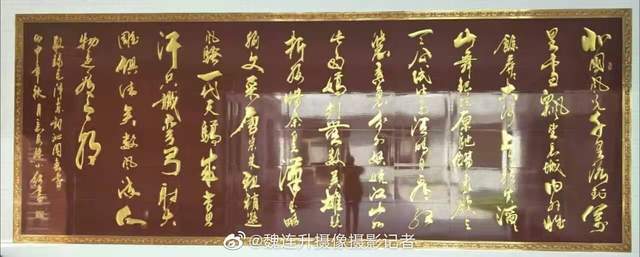 北国风光千里冰封万
里雪飘望长城内外惟
馀莽莽大河上下顿失滔滔
山舞银蛇原驰蜡象欲与
天公试比高须晴日看红
装素裹分外妖娆江山如
此多娇引无数英雄竞
折腰惜秦皇汉武略
输文采唐宗宋祖稍逊
风骚一代天骄成吉思
汗只识弯弓射大
雕俱往矣数风流人
物还看今朝
@魏连升摄像摄影记者